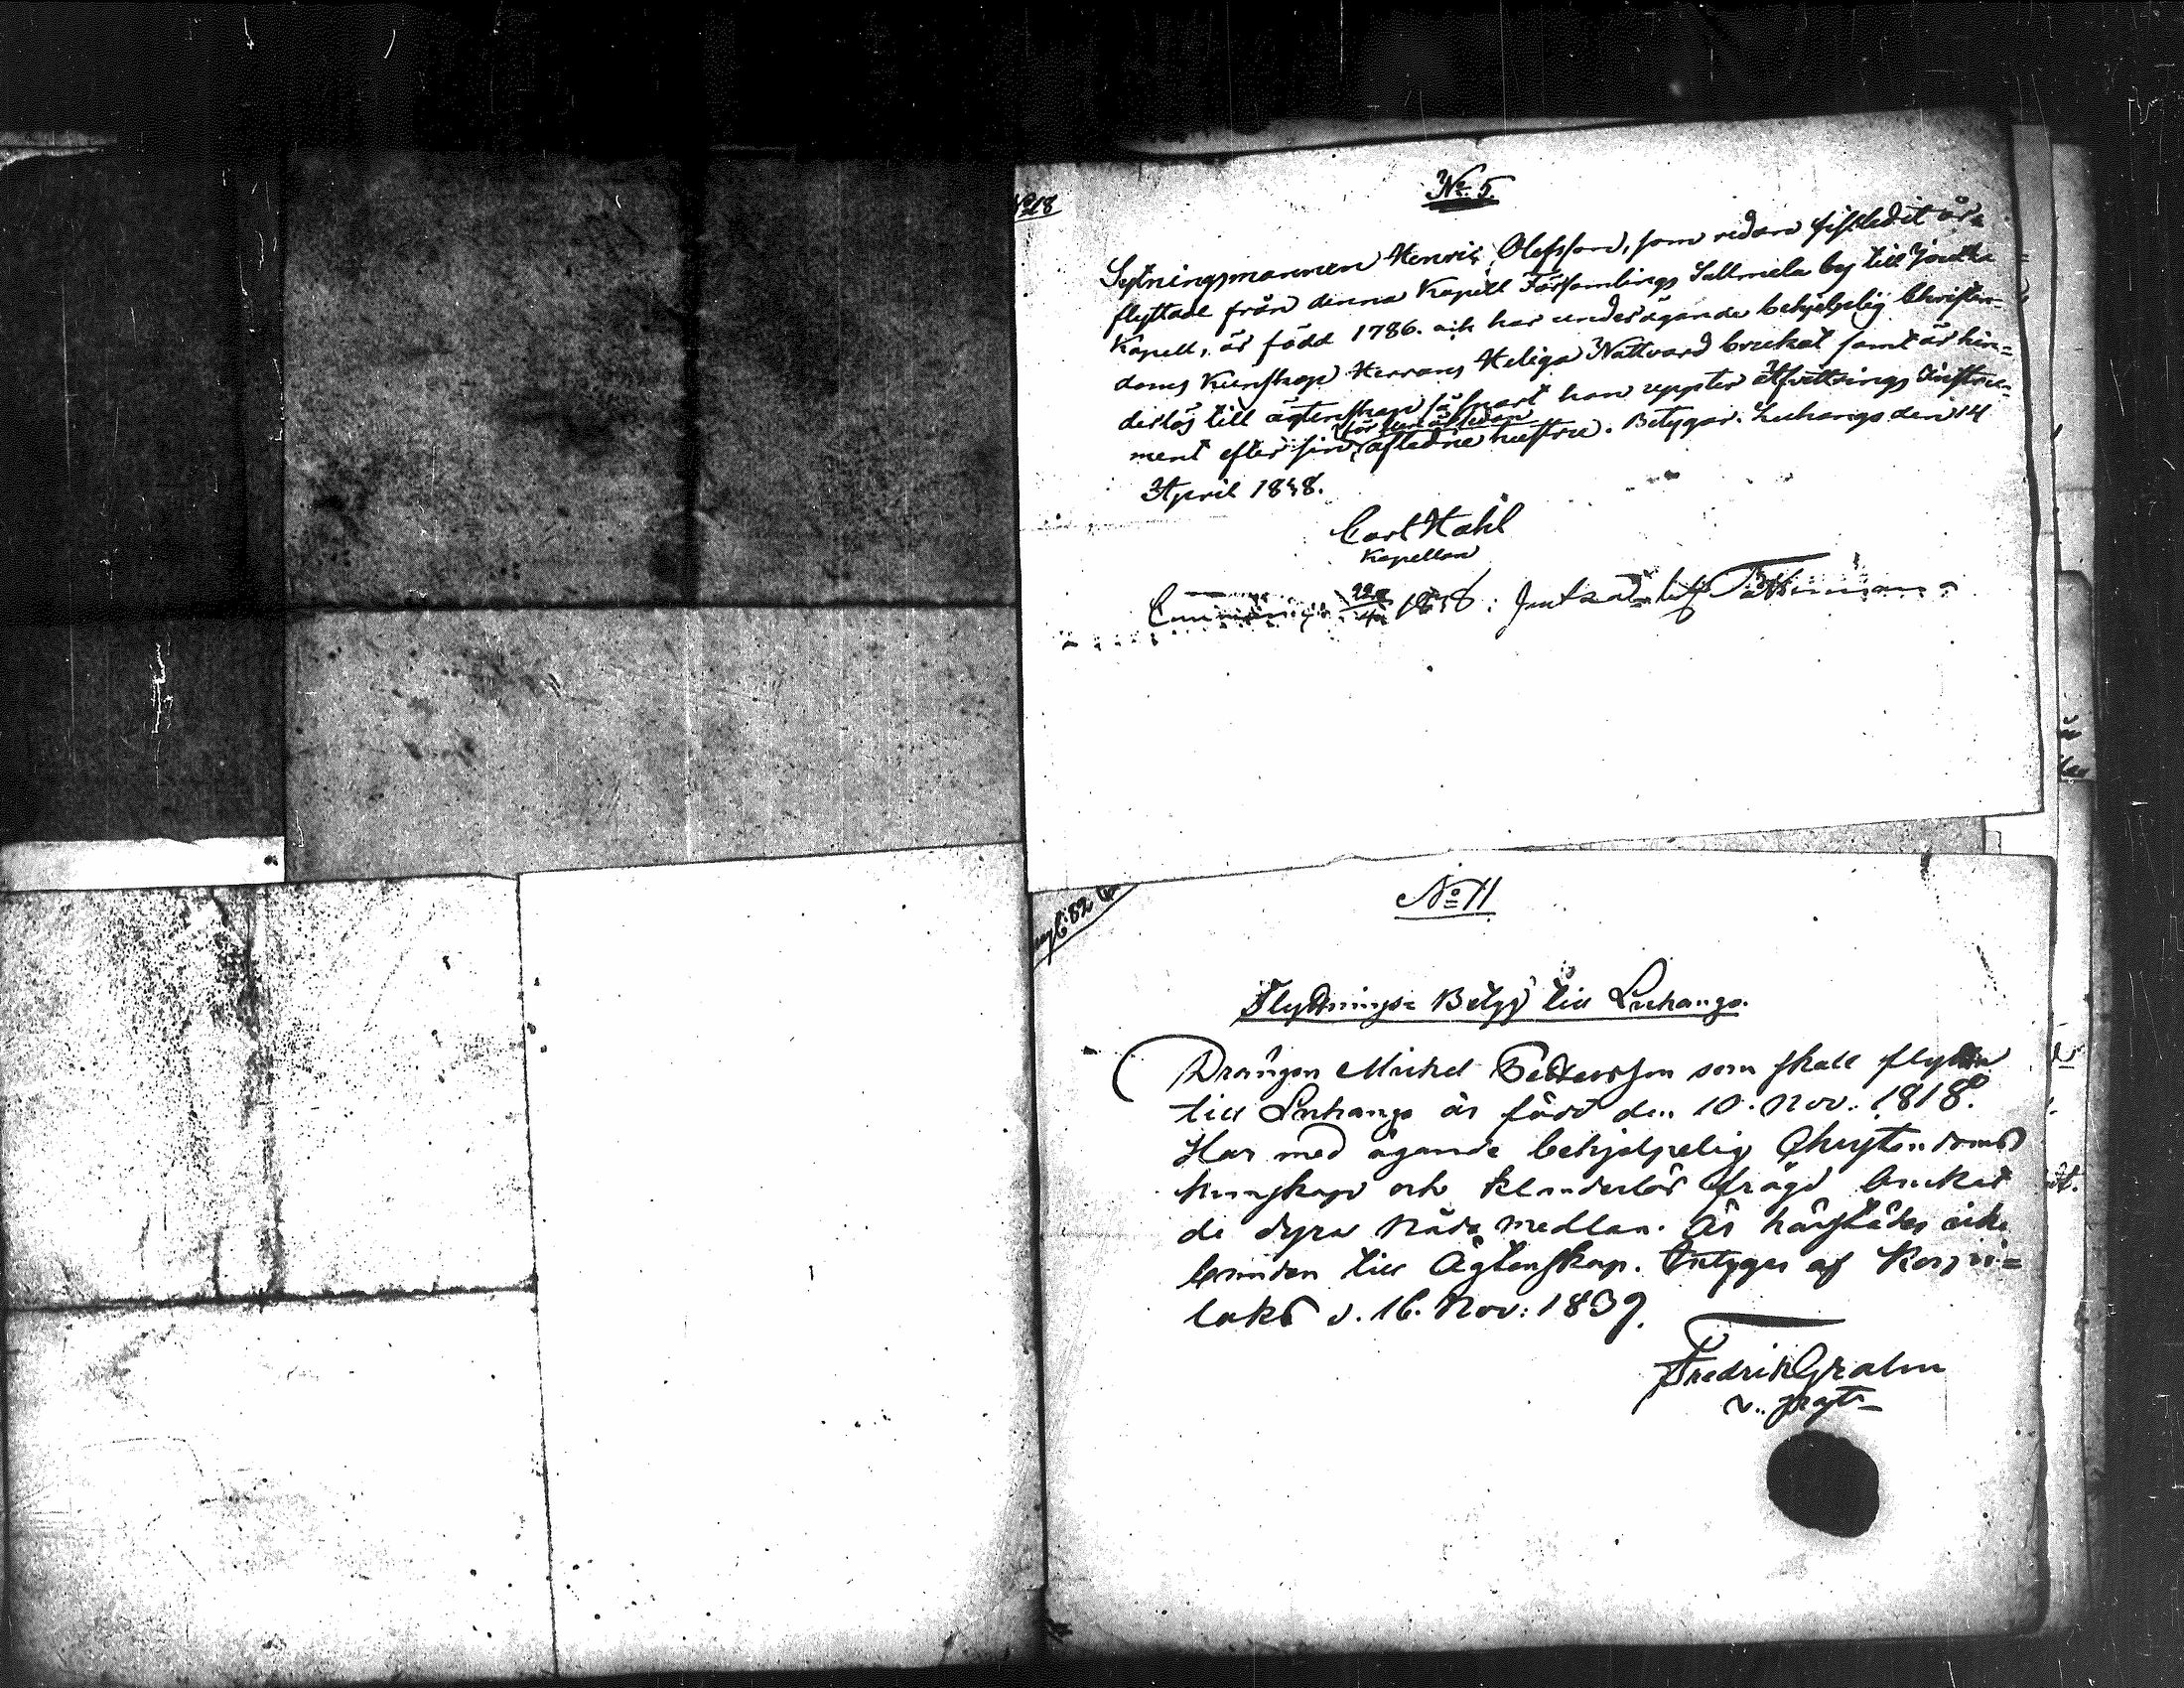 No 18
No 5.
Sytningsmannen Henric Olofsson, som redan sistledit år
flyttade från denna Kapell Församlings Tallmela by till Joutsa
Kapell, är född 1786. och har under ägande behjelplig Christen-
doms Kunskap Herrans Heliga Nattvard brukat samt är hin-
derlös till ägtenskap så snart han uppter Afvittrings Instru-
ment efter sin för
afledne hustru. Betygar. Luhango den 14
April 1838.
Carl Hahl
Kapellan
22
4 1838. Joutsa
No 11
Flyttnings- Betyg till Luhango.
Drängen Michel Pettersson som skall flytta
till Luhango är född den 10. Nov. 1818.
Har med ägande behjelpelig Christendoms
kunskap och klanderlös frägd brukat
de dyra Nåda medlen. Är härstädes icke
bunden till Ägtenskap. Intygar af Korpi-
laks d. 16. Nov: 1839.
Fredrik Grahn
v. past.